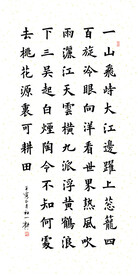 一山飛峙大江邊躍上蔥蘢四
百旋冷眼向洋看世界熱風吹
雨灑江天雲橫九派浮黃鶴浪
下三吳起白煙陶令不知何處
去桃花源裏可耕田